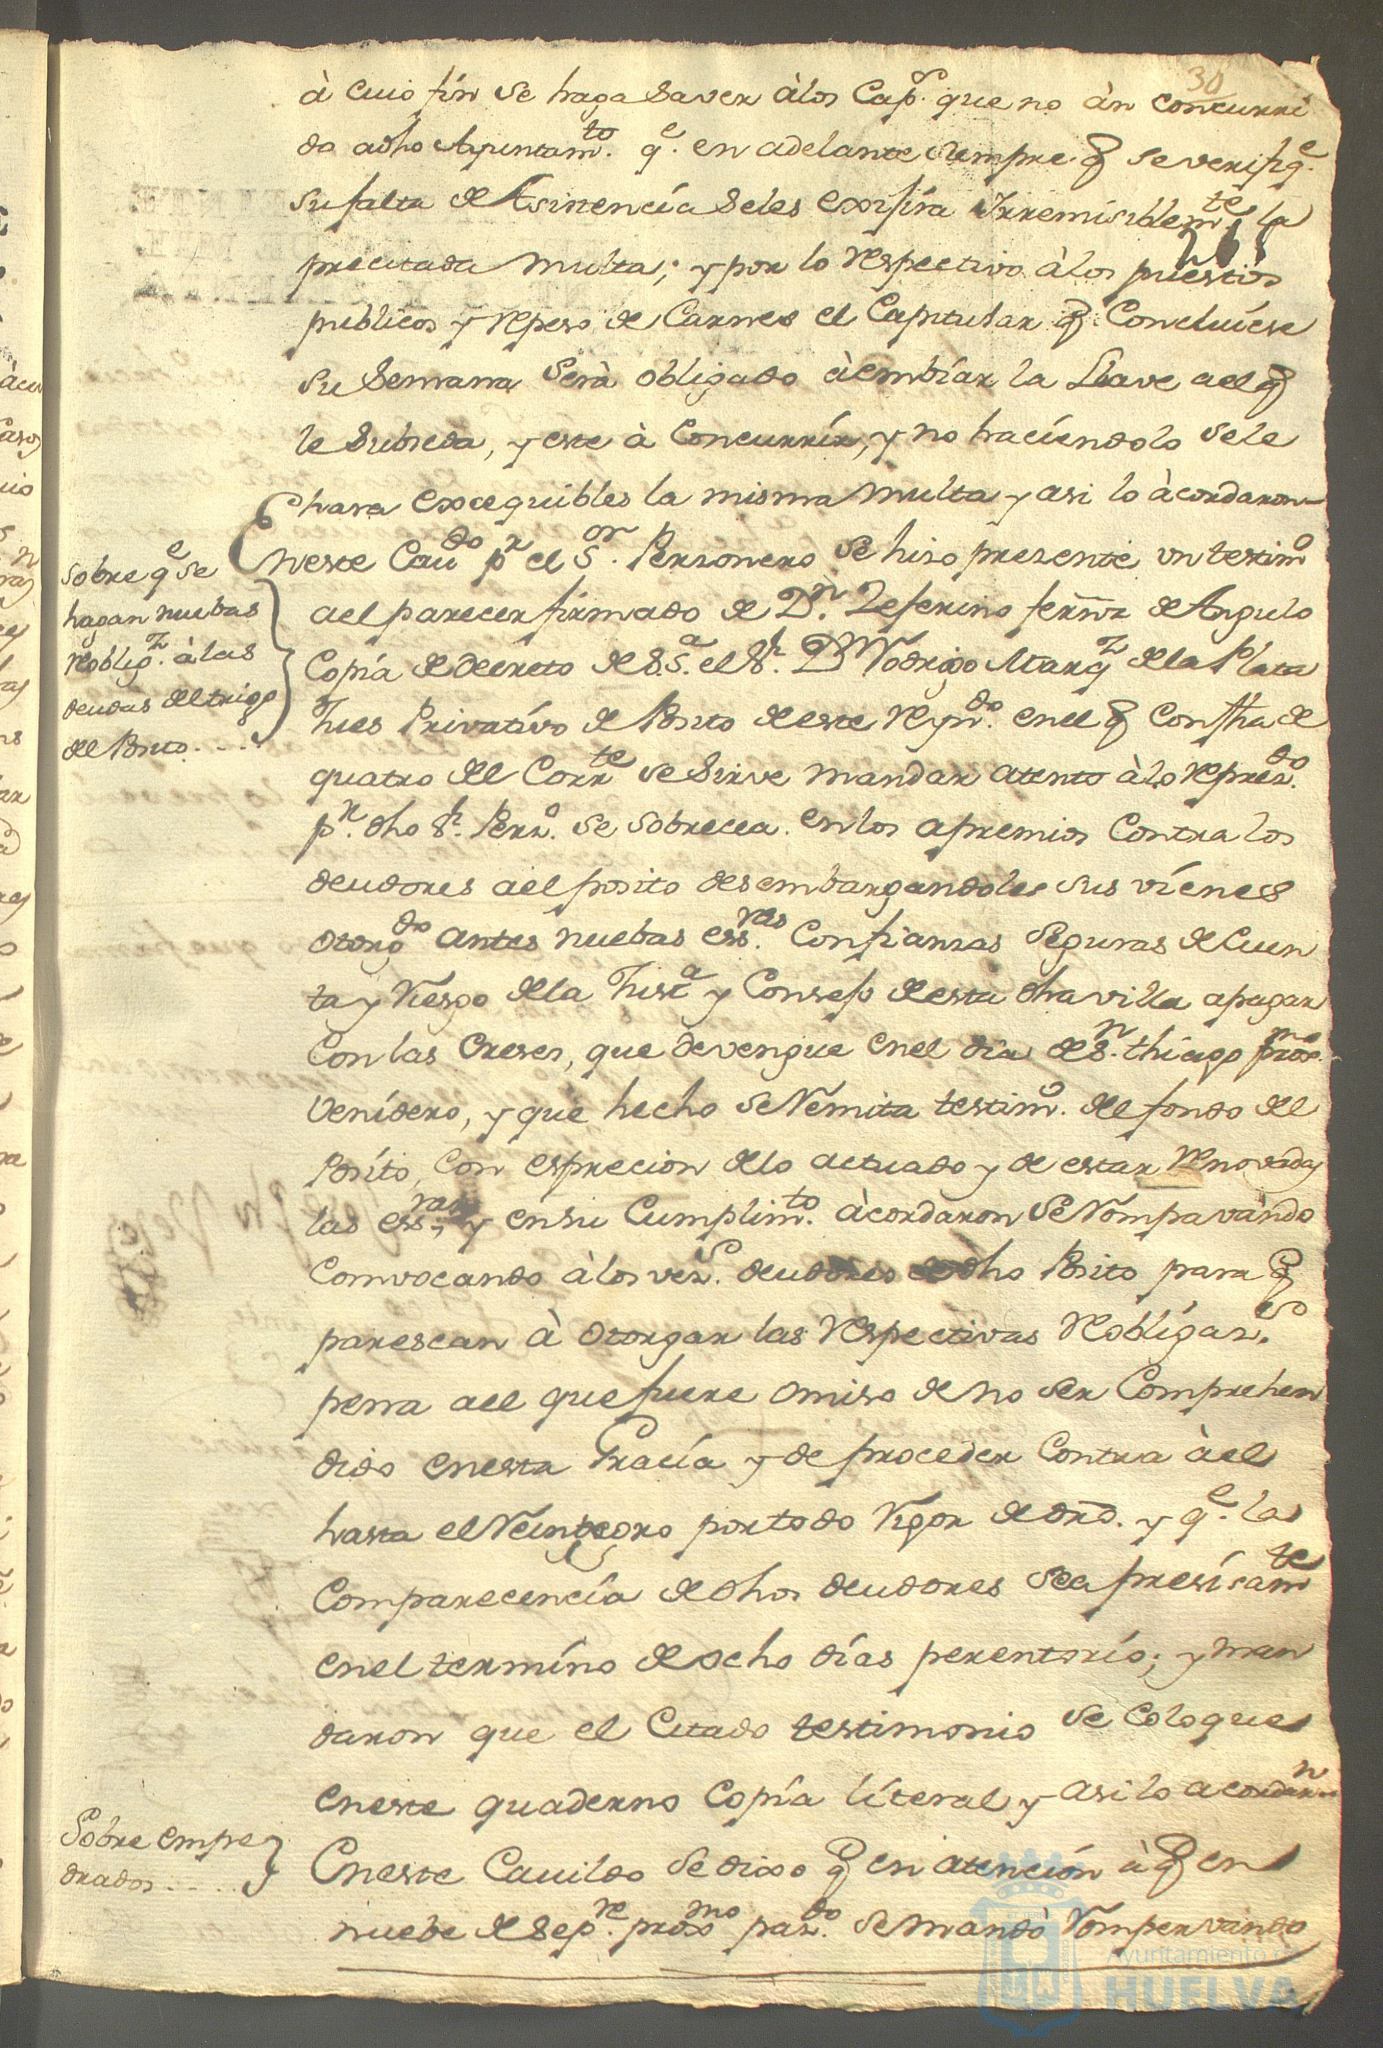 30
à cuio fin se haga saver àlos Cap.s que no àn concurri
do adho Ayuntam.to q.e en adelante siempre q se verifiq.e
su falta de Asistencia seles exijira Irremisiblem.te la
precitada multa; y por lo respectivo àlos puestos
publicos y repeso de Carnes el Capitular q Concluiese
su Semana serà obligado àembiar la Llave ael q
le Subceda, y este à Concurrir, y no haciendolo sele
hara excequibles la misma multa y asi lo àcordaron
Sobre q.e se
hagan nuebas
reoblig.z àlas
deudas del trigo
del Posito
Eneste Cau.do p.r el S.or Personero se hiso presente un testim.o
ael parecer firmado de D.n Zeferino fern.z de Angulo
Copia de decreto de S.S.a el S.r D Rodrigo Marq.z dela Plata
Jues Privativo de Posito de este Reyn.do enel q Con fha de
quatro del Corr.te se sirve mandar atento àlo repres.do
p.r dho S.r Pers.o se sobrecea en los apremios contra los
deudores ael posito desembargandoles sus vienes
otorg.do antes nuebas ess.ras Confianzas seguras de Cuen
ta y Riesgo dela Just.a y Consejo de esta dha villa apagar
Con las Creses, que devengue enel dia de S.n thiago prox.mo
venidero, y que hecho se Remita testim.o del fondo del
Posito, con esprecion delo actuado y de estar renovadas
las ess.ras y en su Cumplim.to àcordaron se Rompa vando
Convocando àlos vez.s deudores de dho Posito para q
parescan à otorgar las respectivas reobligaz.s
pena ael que fuere omiso de no ser Comprehen
dido en esta Gracia y de proceder Contra àel
hasta el Reintegro por todo Rigor de dro. y q.e la
Comparecencia de dhos deudores sea presisam.te
enel termino de ocho dias perentorio; y man
daron que el Citado testimonio se coloque
eneste quaderno Copia literal y asi lo acordar.n
Sobre empe
drados
Eneste Cavildo se dixo q en atencion à q en
nuebe de Sep.re prox.mo paz.do se mandò Romper vando
Ayuntamiento de
HUELVA